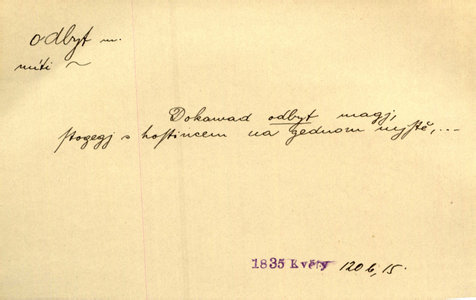 odbyt m.
míti ~
Dokawad odbyt magj,
stogegj s hostincem na gednom mjstě,...
1835 Květy 120 b, 15.